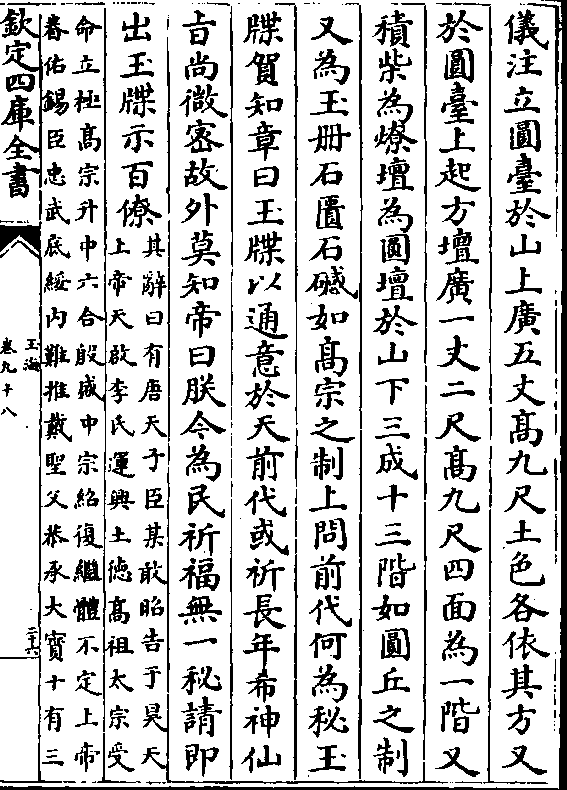 儀注立圓臺於山上廣五丈髙九尺土色各依其方又
於圓臺上起方壇廣一丈二尺髙九尺四面為一階又
積柴為燎壇為圓壇於山下三成十三階如圓丘之制
又為玉册石匱石䃭如髙宗之制上問前代何為秘玉
牒賀知章曰玉牒以通意於天前代或祈長年希神仙
㫖尚微宻故外莫知帝曰朕今為民祈福無一秘請即
出玉牒示百僚
其辭曰有唐天子臣某敢昭告于昊天
上帝天啟李氏運興土徳髙祖太宗受
命立極髙宗升中六合殷盛中宗紹復繼體不定上帝
眷佑錫臣忠武底綏内難推戴聖父恭承大寶十有三
欽定四庫全書
玉海
卷九十八
二十六